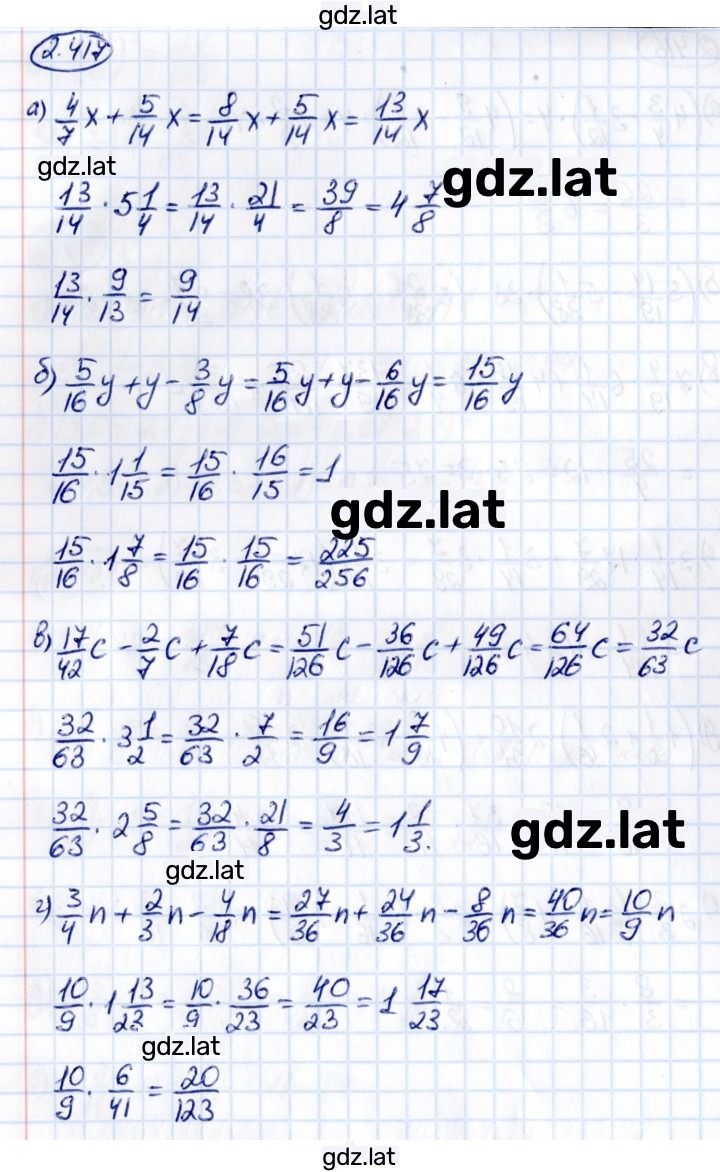 gdz.lat
2.417
а) 4/7 x + 5/14 x = 8/14 x + 5/14 x = 13/14 x
gdz.lat
13/14 · 5 1/4 = 13/14 · 21/4 = 39/8 = 4 7/8
gdz.lat
13/14 · 9/13 = 9/14
б) 5/16 y + y - 3/8 y = 5/16 y + y - 6/16 y = 15/16 y
15/16 · 1 1/15 = 15/16 · 16/15 = 1
gdz.lat
15/16 · 1 7/8 = 15/16 · 15/16 = 225/256
в) 17/42 c - 2/7 c + 7/18 c = 51/126 c - 36/126 c + 49/126 c = 64/126 c = 32/63 c
32/63 · 3 1/2 = 32/63 · 7/2 = 16/9 = 1 7/9
32/63 · 2 5/8 = 32/63 · 21/8 = 4/3 = 1 1/3.
gdz.lat
gdz.lat
г) 3/4 n + 2/3 n - 4/18 n = 27/36 n + 24/36 n - 8/36 n = 40/36 n = 10/9 n
10/9 · 1 13/23 = 10/9 · 36/23 = 40/23 = 1 17/23
gdz.lat
10/9 · 6/41 = 20/123
gdz.lat